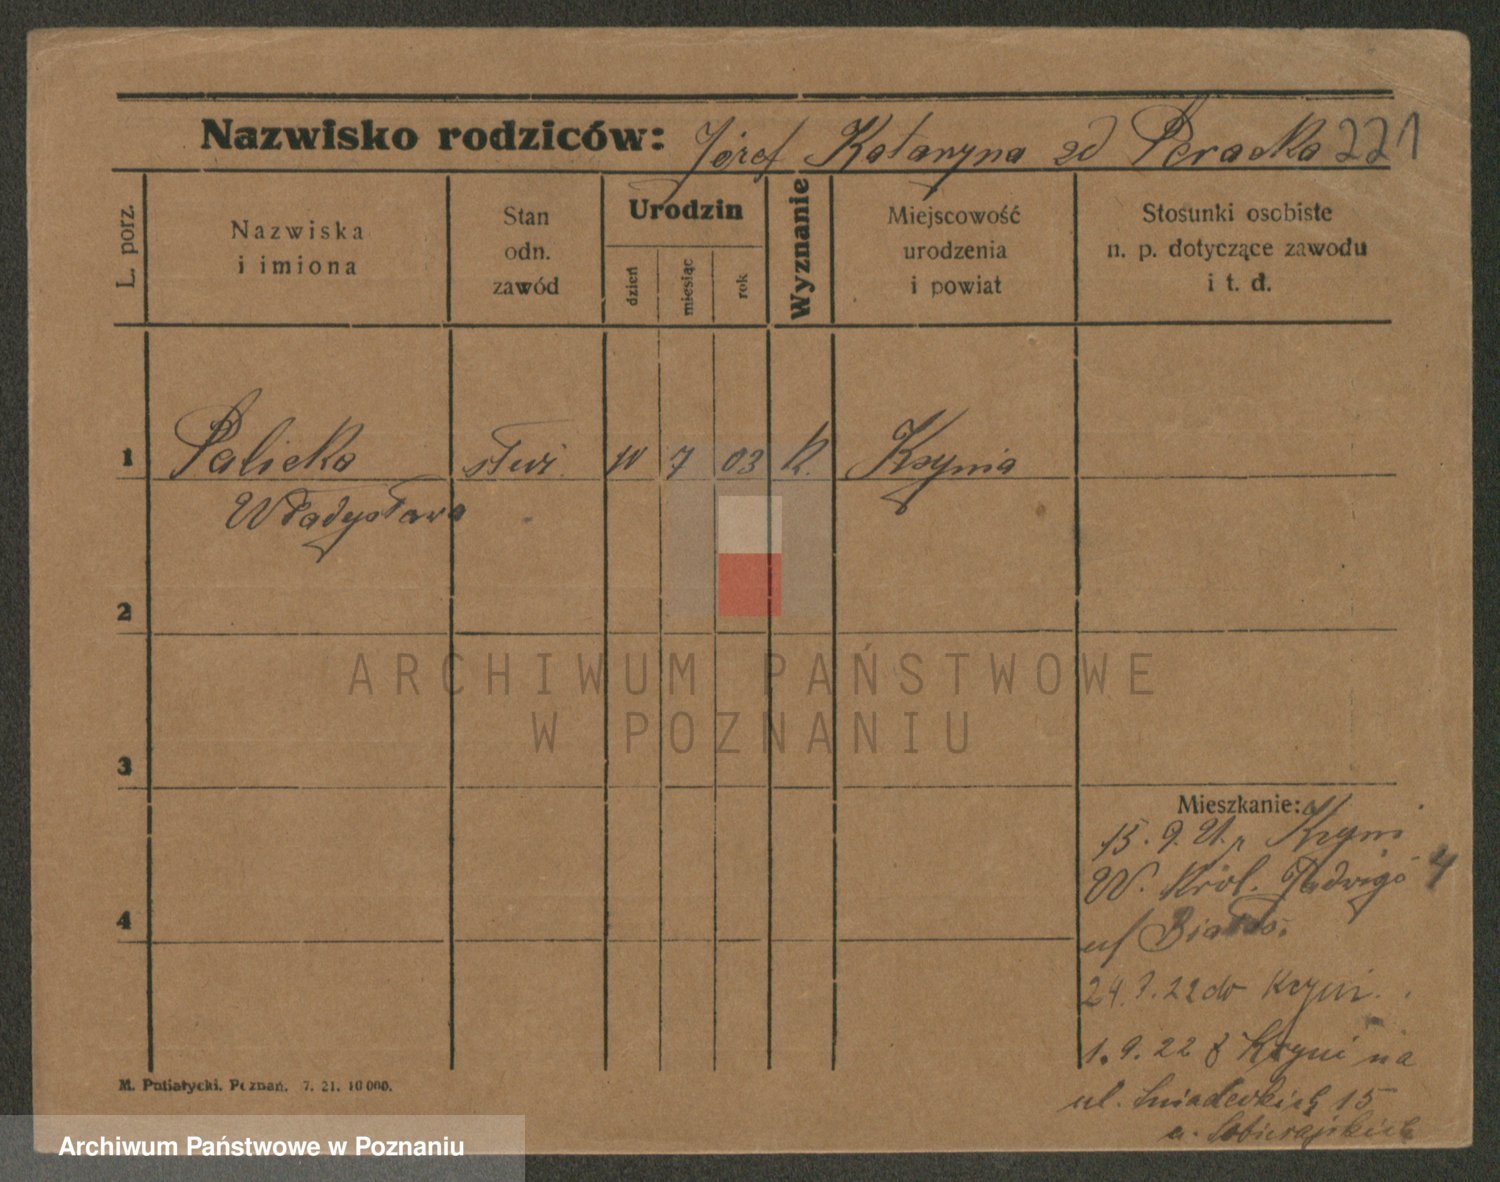 Nazwisko rodziców: Józef Katarzyna zd 221
L. porz.
Nazwiska
i imiona
Stan
odn.
zawód
Urodzin
dzień
miesiąc
rok
Wyznanie
Miejscowość
urodzenia
i powiat
Stosunki osobiste
n. p. dotyczące zawodu
i t. d.
1 Palicka 7 03 K. Kcynia
Władysława
2
3
4
Mieszkanie:
15. 9. 21. z Kcyni
W. Król. Jadwigi 4
24. 7. 22 do Kcyni.
1. 9. 22 z Kcyni na
ul. Śniadeckich 15
M. Putiatycki, Poznań. 7. 21. 10 000.
ARCHIWUM PAŃSTWOWE
W POZNANIU
Archiwum Państwowe w Poznaniu